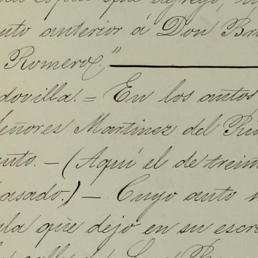 uto anterior á Don Br
Romero,"
dovilla.= En los autos
eñores Martinez del Ri
uto. – (Aquí el de trein
asado.) – Cuyo auto
la que dejo en su escr